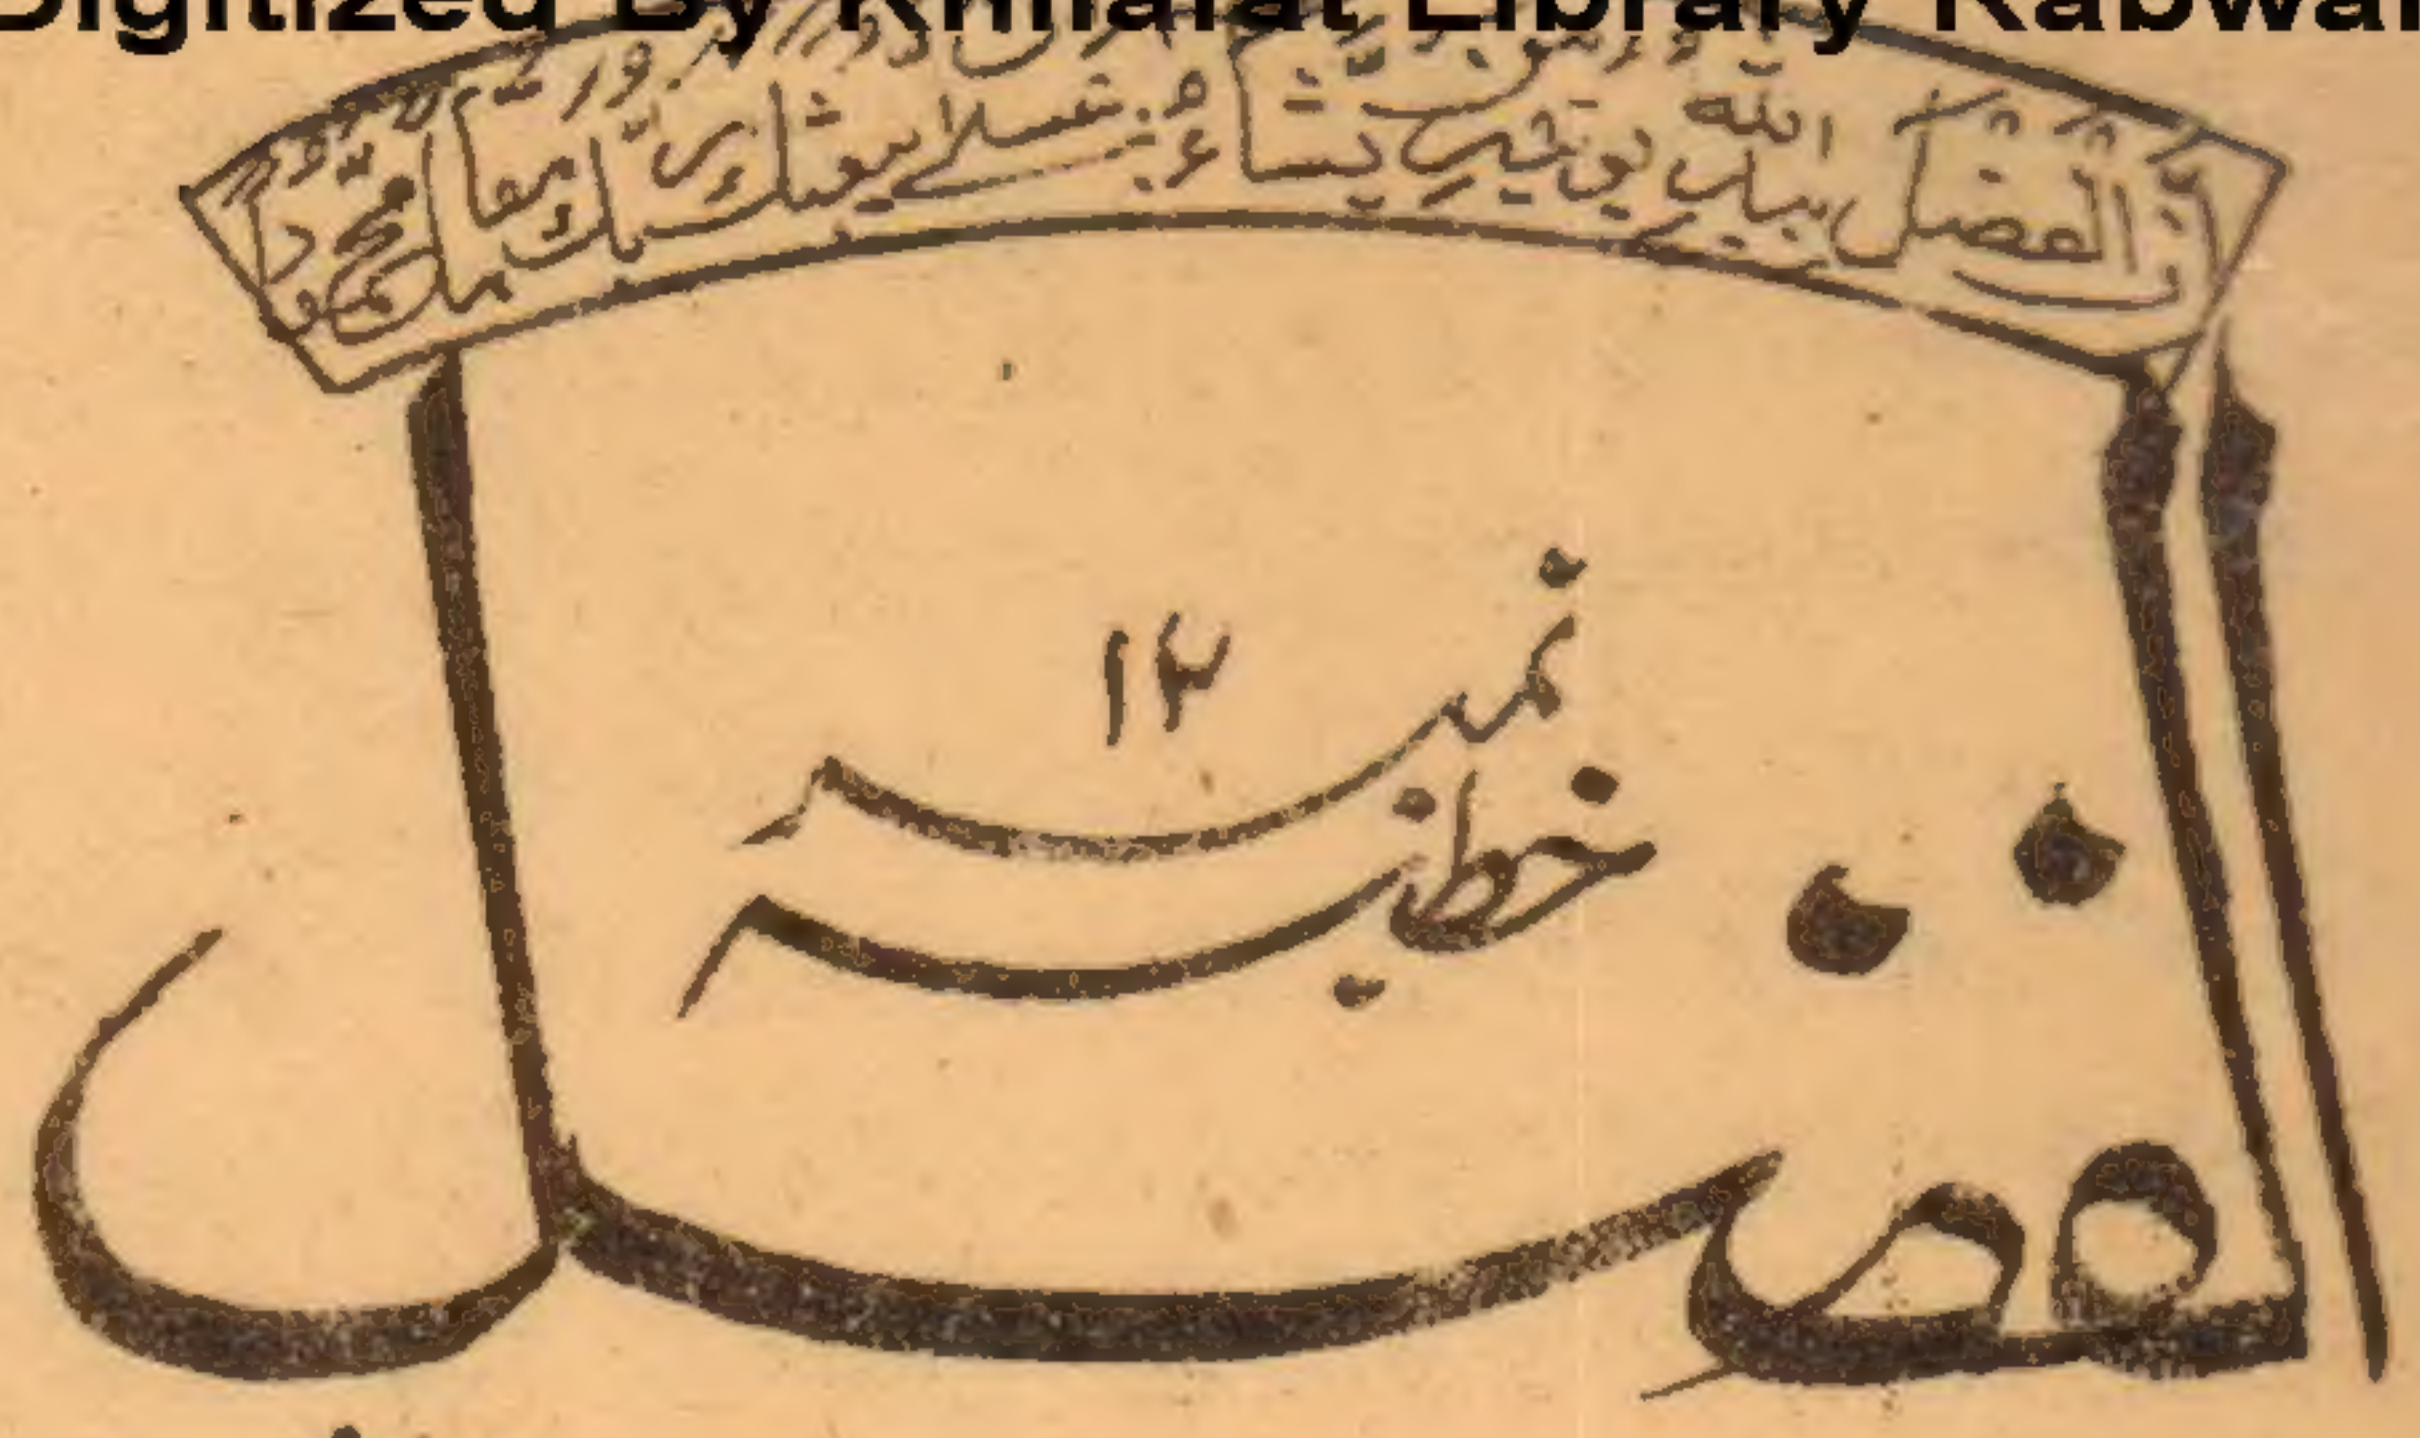 Digitized By Khilafat Library Rabwah
ان الفضل بيد الله يؤتيه من يشاء عسىٰ ان يبعثك ربك مقاما محمودا
نمبر ۱۲
خطبہ
الفضل